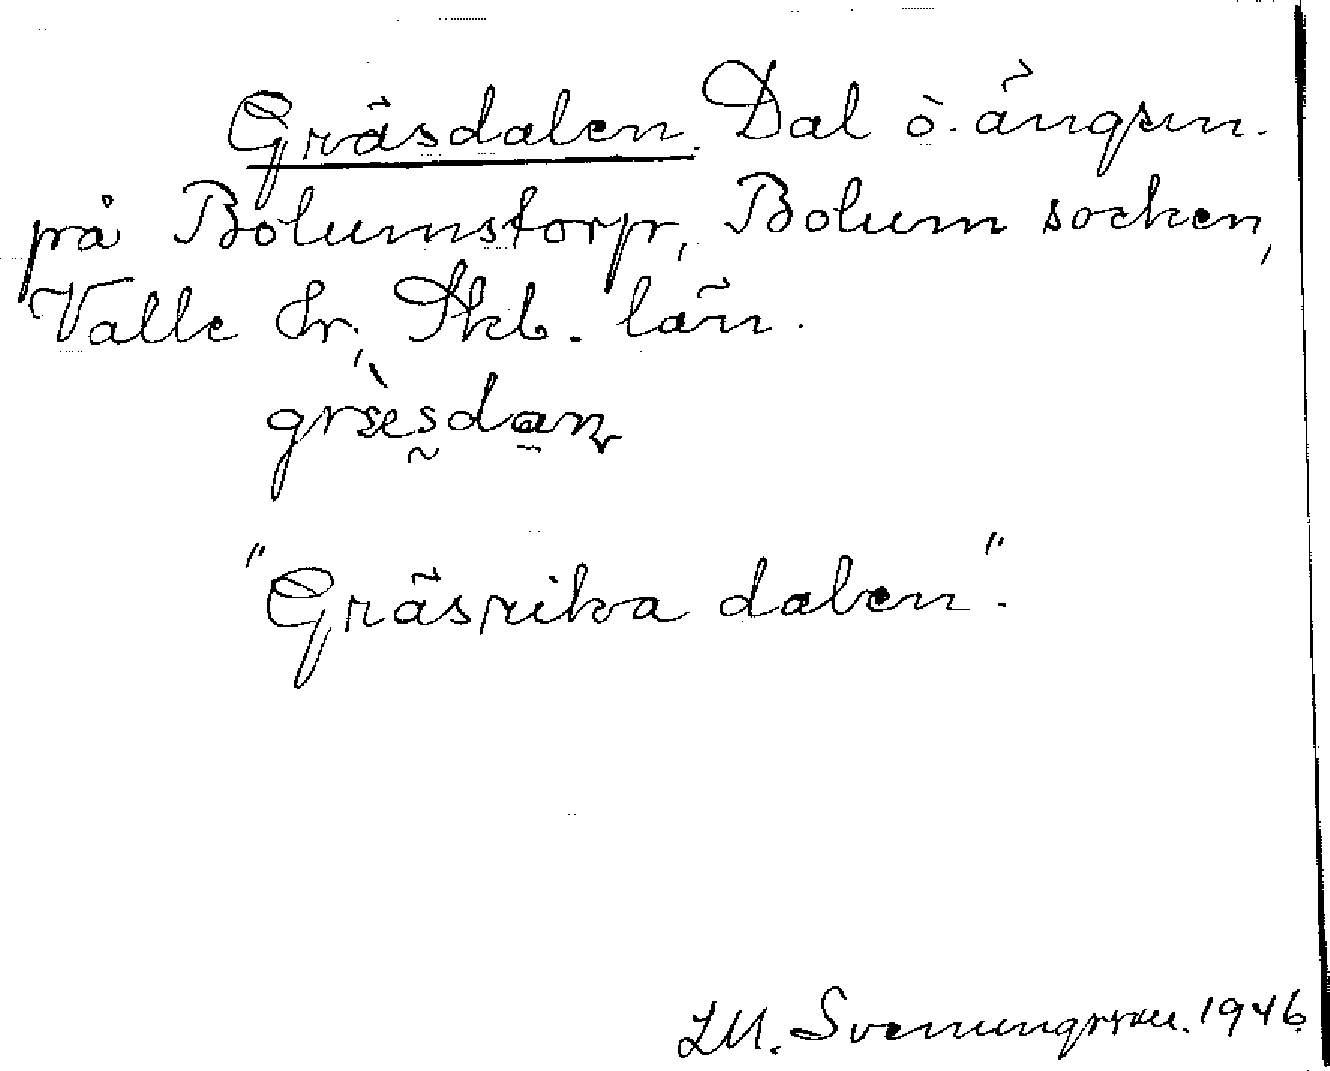 Gräsdalen. Dal ö. ängen.
på Bolumstorp, Bolum socken,
Valle hr, Skb. län.
"Gräsrika dalen".
LM. Svenungsson. 1946